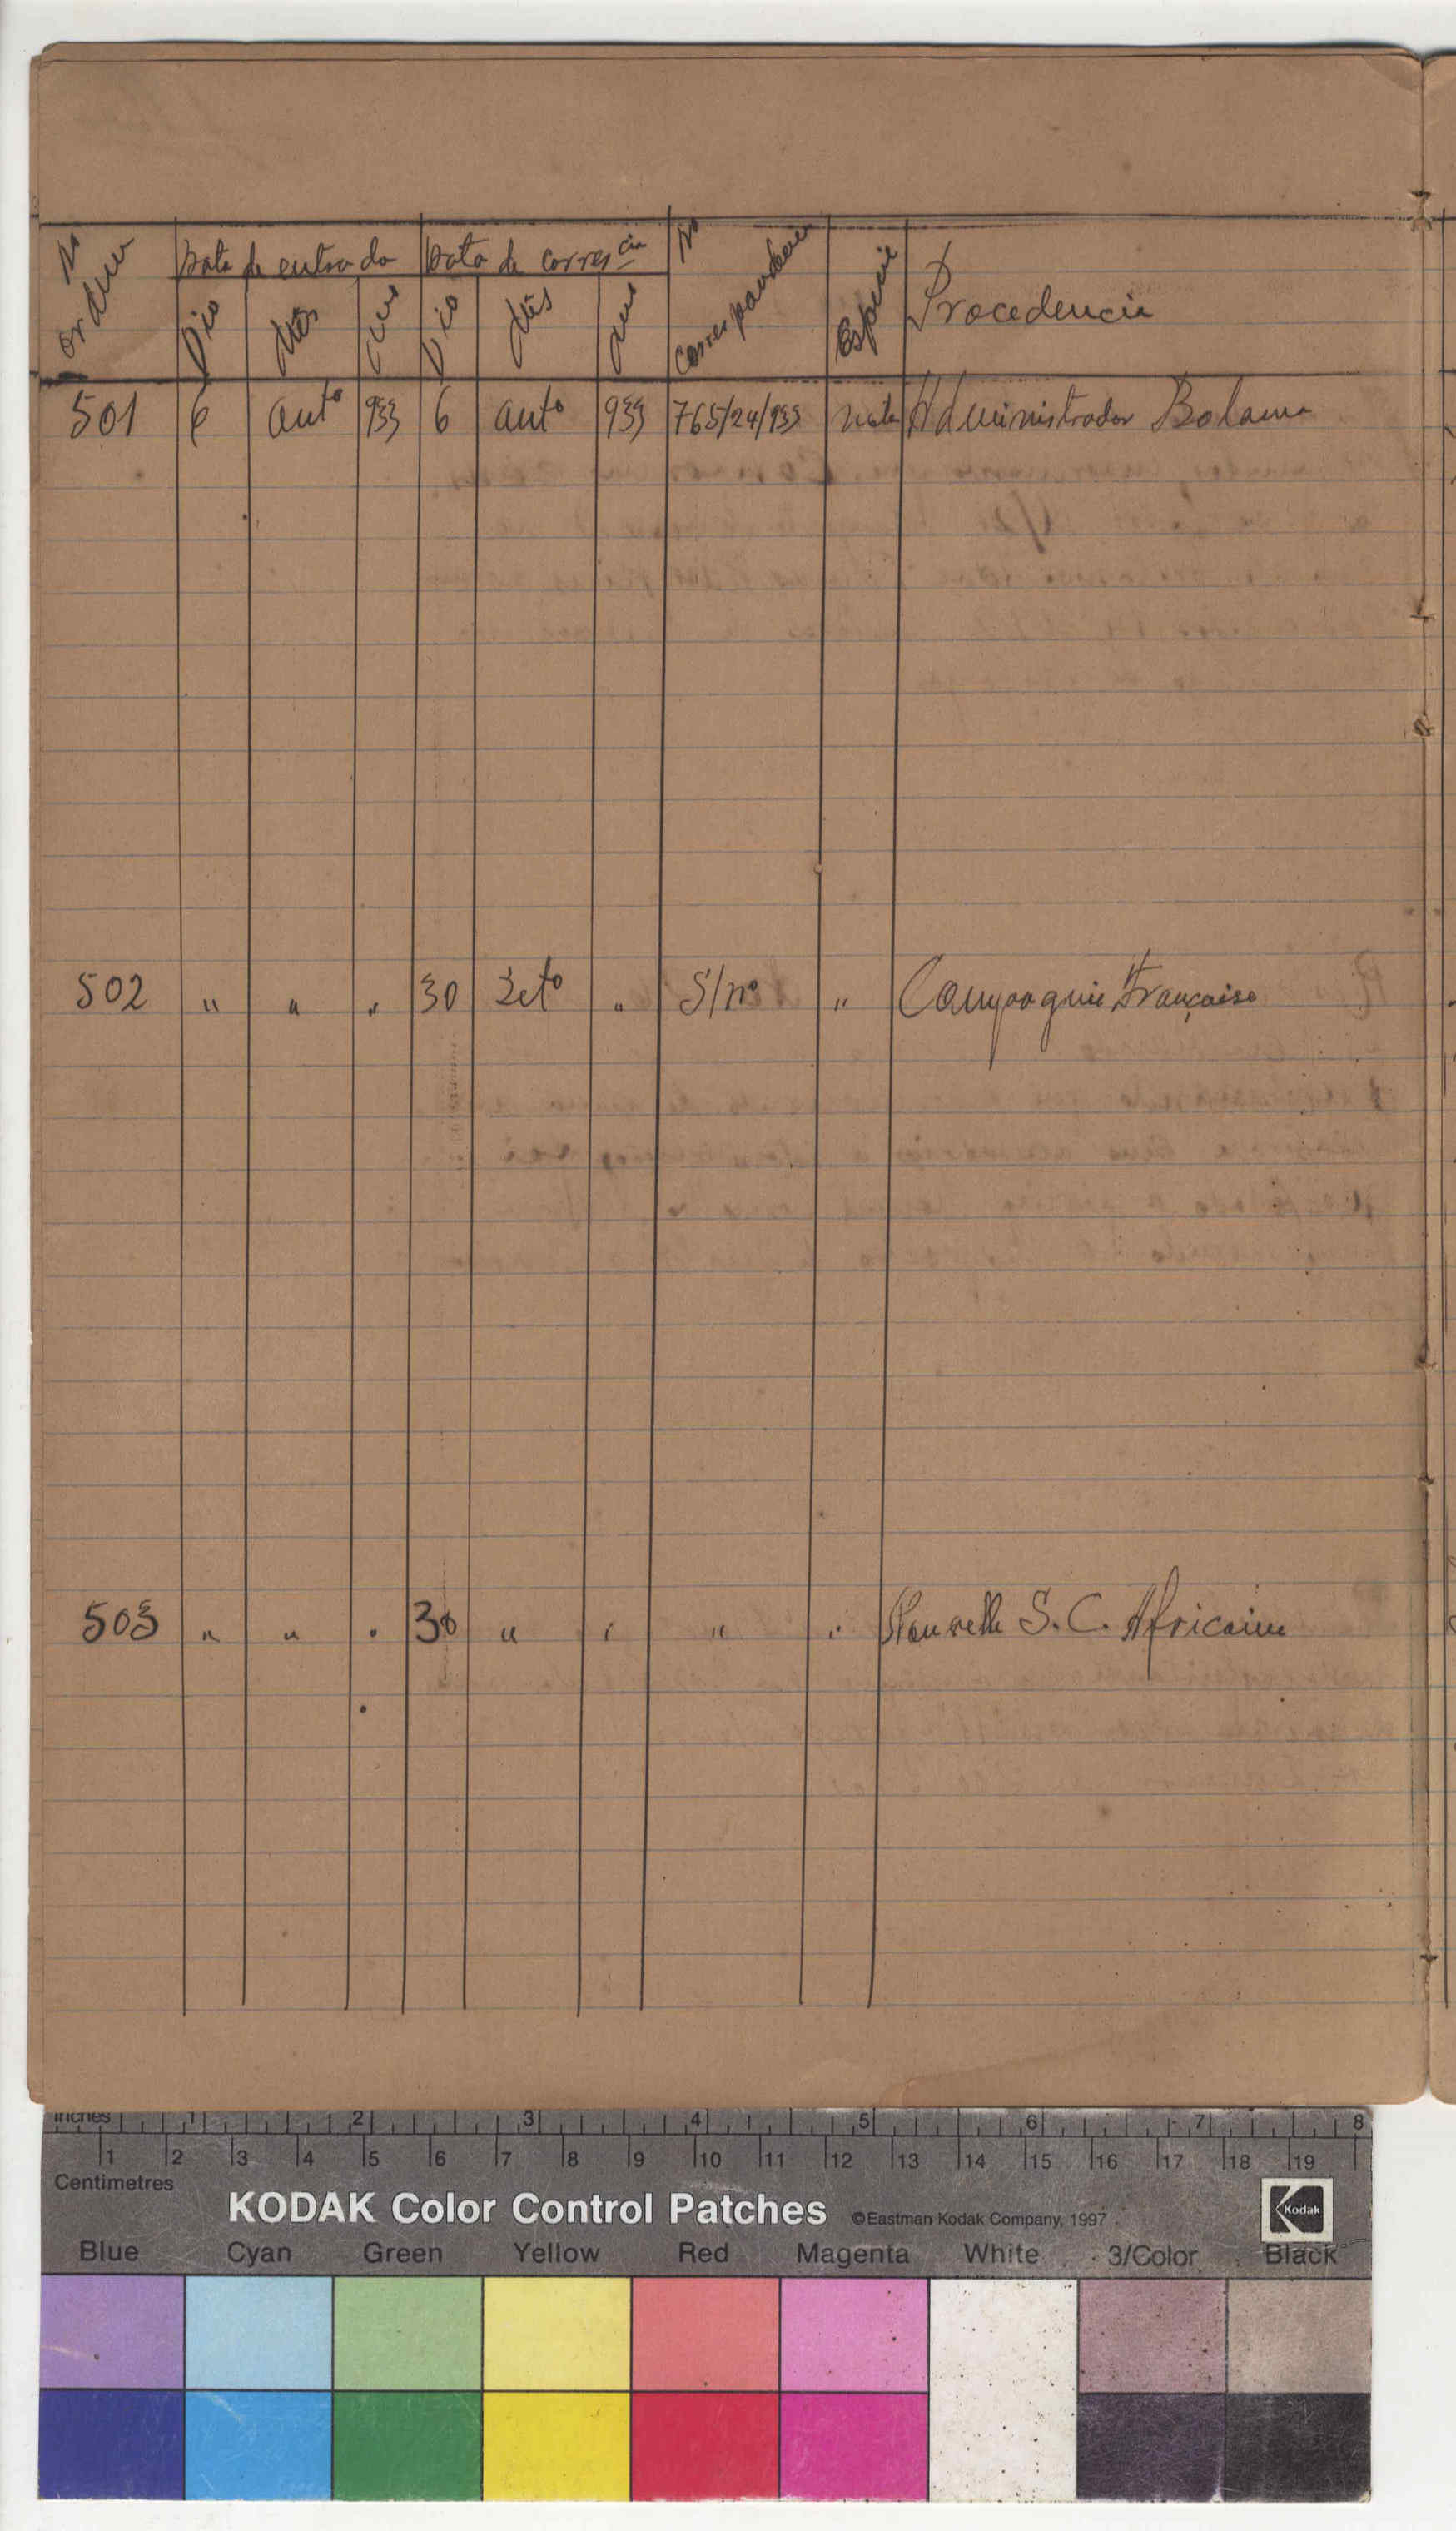 No ordem Data de entrada Data de correscia No correspondencia Especie Procedencia
Dia Mês ano Dia Mês ano
501 6 outo 933 6 outo 933 765/24/933 nota Administrador Bolama
502 " " " 30 Seto " S/no " Compagnie Française
503 " " " 30 " " " " Nouvelle S. C. Africaine
inches 1 2 3 4 5 6 7 8
1 2 3 4 5 6 7 8 9 10 11 12 13 14 15 16 17 18 19
Centimetres
KODAK Color Control Patches ©Eastman Kodak Company, 1997 Kodak
Blue Cyan Green Yellow Red Magenta White 3/Color Black